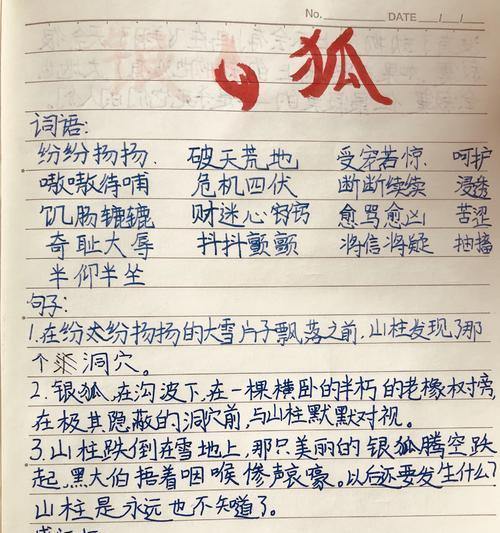 No. DATE / /
狐
词语:
纷纷扬扬. 破天荒地 受宠若惊 呵护
嗷嗷待哺 危机四伏 断断续续 浸透
饥肠辘辘 财迷心窍窍 愈骂愈凶 苦涩
奇耻大辱 抖抖颤颤 将信将疑 抽搐
半仰半坐
句子:
1.在纷纷扬扬的大雪片子飘落之前,山柱发现了那
个洞穴。
2.银狐,在沟波下,在一棵横卧的半朽的老橡权对旁,
在极其隐蔽的洞穴前,与山柱默默对视。
3.山柱跌倒在雪地上,那只美丽的银狐腾空跃
起,黑大伯捂着咽喉惨声哀嚎。以后还要发生什么?
山柱是永远也不知道了。